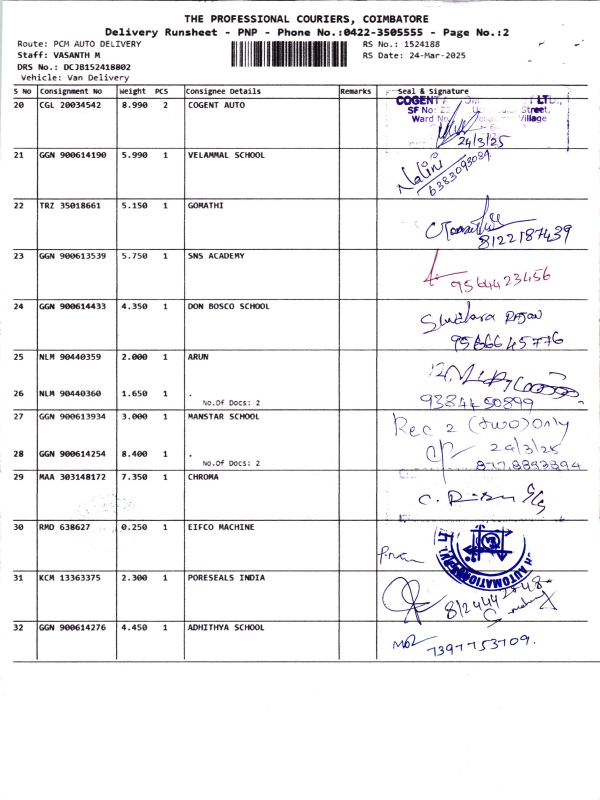 THE PROFESSIONAL COURIERS, COIMBATORE
Delivery Runsheet - PNP - Phone No.:0422-3505555 - Page No.:2
Route: PCM AUTO DELIVERY RS No.: 1524188
Staff: VASANTH M RS Date: 24-Mar-2025
DRS No.: DCJB152418802
Vehicle: Van Delivery
S No Consignment No Weight PCS Consignee Details Remarks Seal & Signature
20 CGL 20034542 8.990 2 COGENT AUTO
COGENT LTD.,
SF No: Street,
Ward No Village
24/3/25
21 GGN 900614190 5.990 1 VELAMMAL SCHOOL
Nalini
6383093089
22 TRZ 35018661 5.150 1 GOMATHI
8122187439
23 GGN 900613539 5.750 1 SNS ACADEMY
9564423456
24 GGN 900614433 4.350 1 DON BOSCO SCHOOL
9566645776
25 NLM 90440359 2.000 1 ARUN
26 NLM 90440360 1.650 1 .
No.Of Docs: 2
9384450899
27 GGN 900613934 3.000 1 MANSTAR SCHOOL
Rec 2 (two) only
24/3/25
28 GGN 900614254 8.400 1 .
No.Of Docs: 2
8778893894
29 MAA 303148172 7.350 1 CHROMA
30 RMD 638627 0.250 1 EIFCO MACHINE
31 KCM 13363375 2.300 1 PORESEALS INDIA
32 GGN 900614276 4.450 1 ADHITHYA SCHOOL
7397753709.